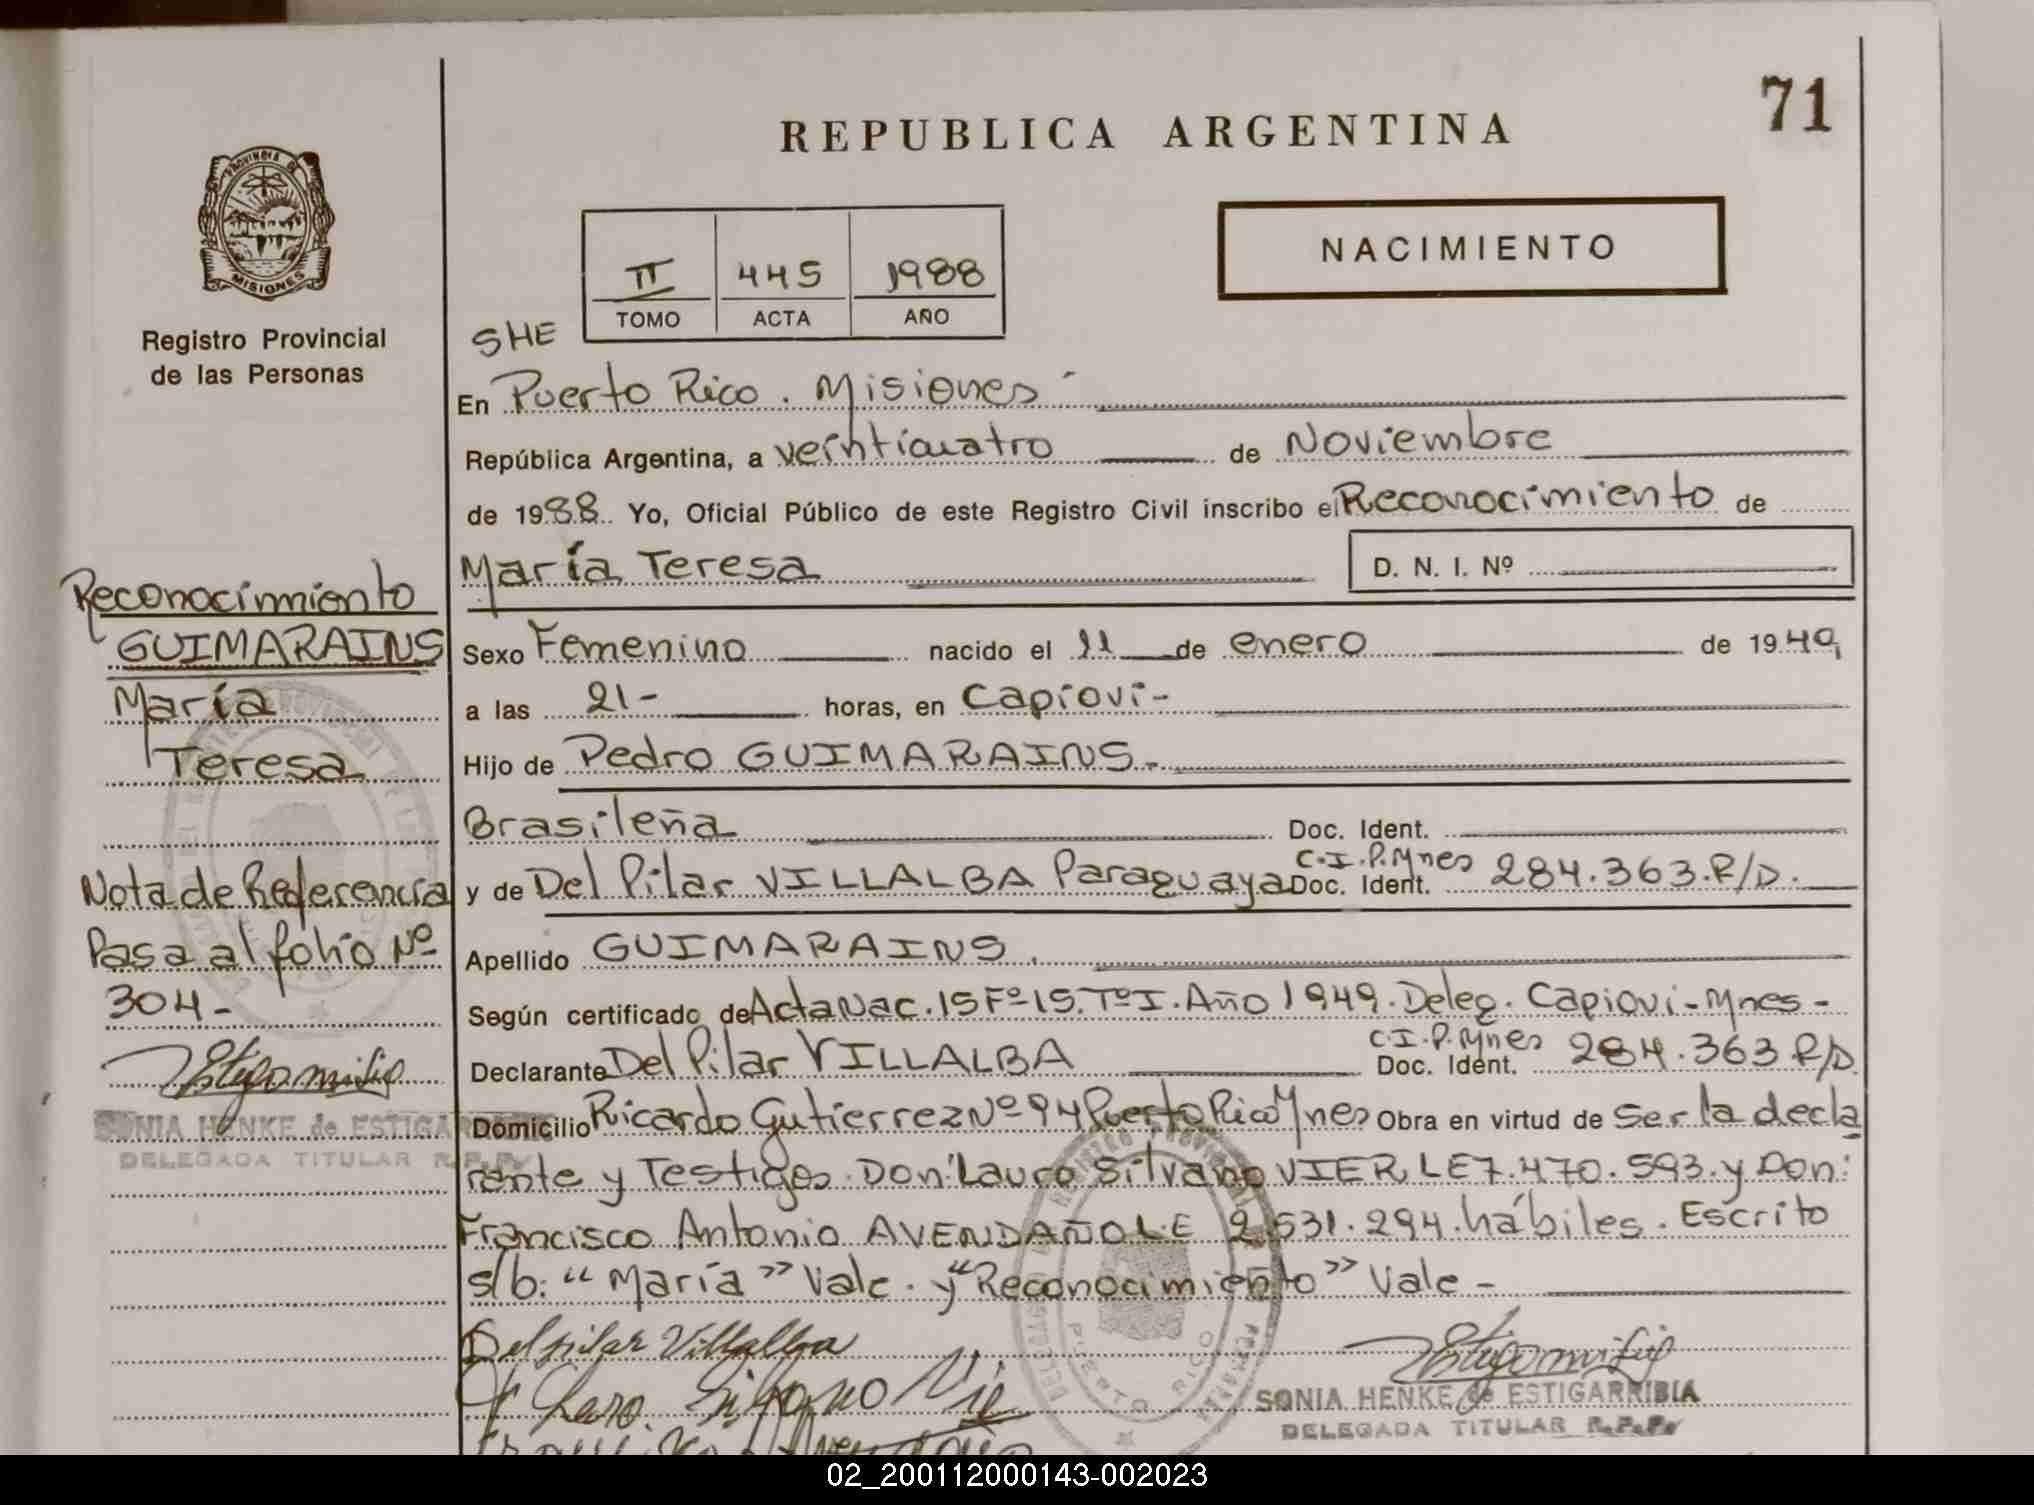 71
REPUBLICA ARGENTINA
PROVINCIA DE
MISIONES
Registro Provincial
de las Personas
NACIMIENTO
II 445 1988
TOMO ACTA AÑO
SHE
En Puerto Rico. Misiones
República Argentina, a veinticuatro de Noviembre
de 1988. Yo, Oficial Público de este Registro Civil inscribo el Reconocimiento de
María Teresa D. N. I. Nº
Sexo Femenino nacido el 11 de enero de 1949
a las 21- horas, en Capioví-
Hijo de Pedro GUIMARAINS-
Brasileña Doc. Ident.
C.I.P.Mnes
y de Del Pilar VILLALBA Paraguaya Doc. Ident. 284.363.R/D.
Apellido GUIMARAINS.
Según certificado de Acta Nac. 15 Fº 15. Tº I. Año 1949. Deleg. Capioví-Mnes-
C.I.P.Mnes
Declarante Del Pilar VILLALBA Doc. Ident. 284.363 R/D
Domicilio Ricardo Gutierrez Nº 94 Puerto Rico Mnes Obra en virtud de ser la decla
rante y Testigos. Don: Lauro Silvano VIER LE 7.470.593. y Don:
Francisco Antonio AVENDAÑO L.E 2.531.294. hábiles. Escrito
s/b: "María" Vale. y "Reconocimiento" Vale-
Del pilar Villalba
SONIA HENKE de ESTIGARRIBIA
DELEGADA TITULAR R.P.P.
PUERTO RICO
Reconocimiento
GUIMARAINS
María
Teresa
Nota de Referencia
Pasa al folio Nº
304-
SONIA HENKE de ESTIGARRIBIA
DELEGADA TITULAR R.P.P.
02_200112000143-002023